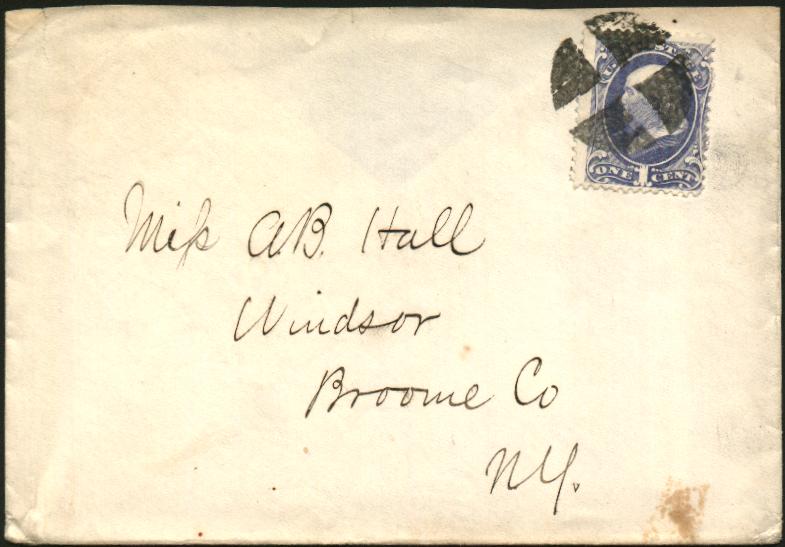 U.S. POSTAGE
ONE 1 CENT
Miſs A.B. Hall
Windsor
Broome Co
N.Y.